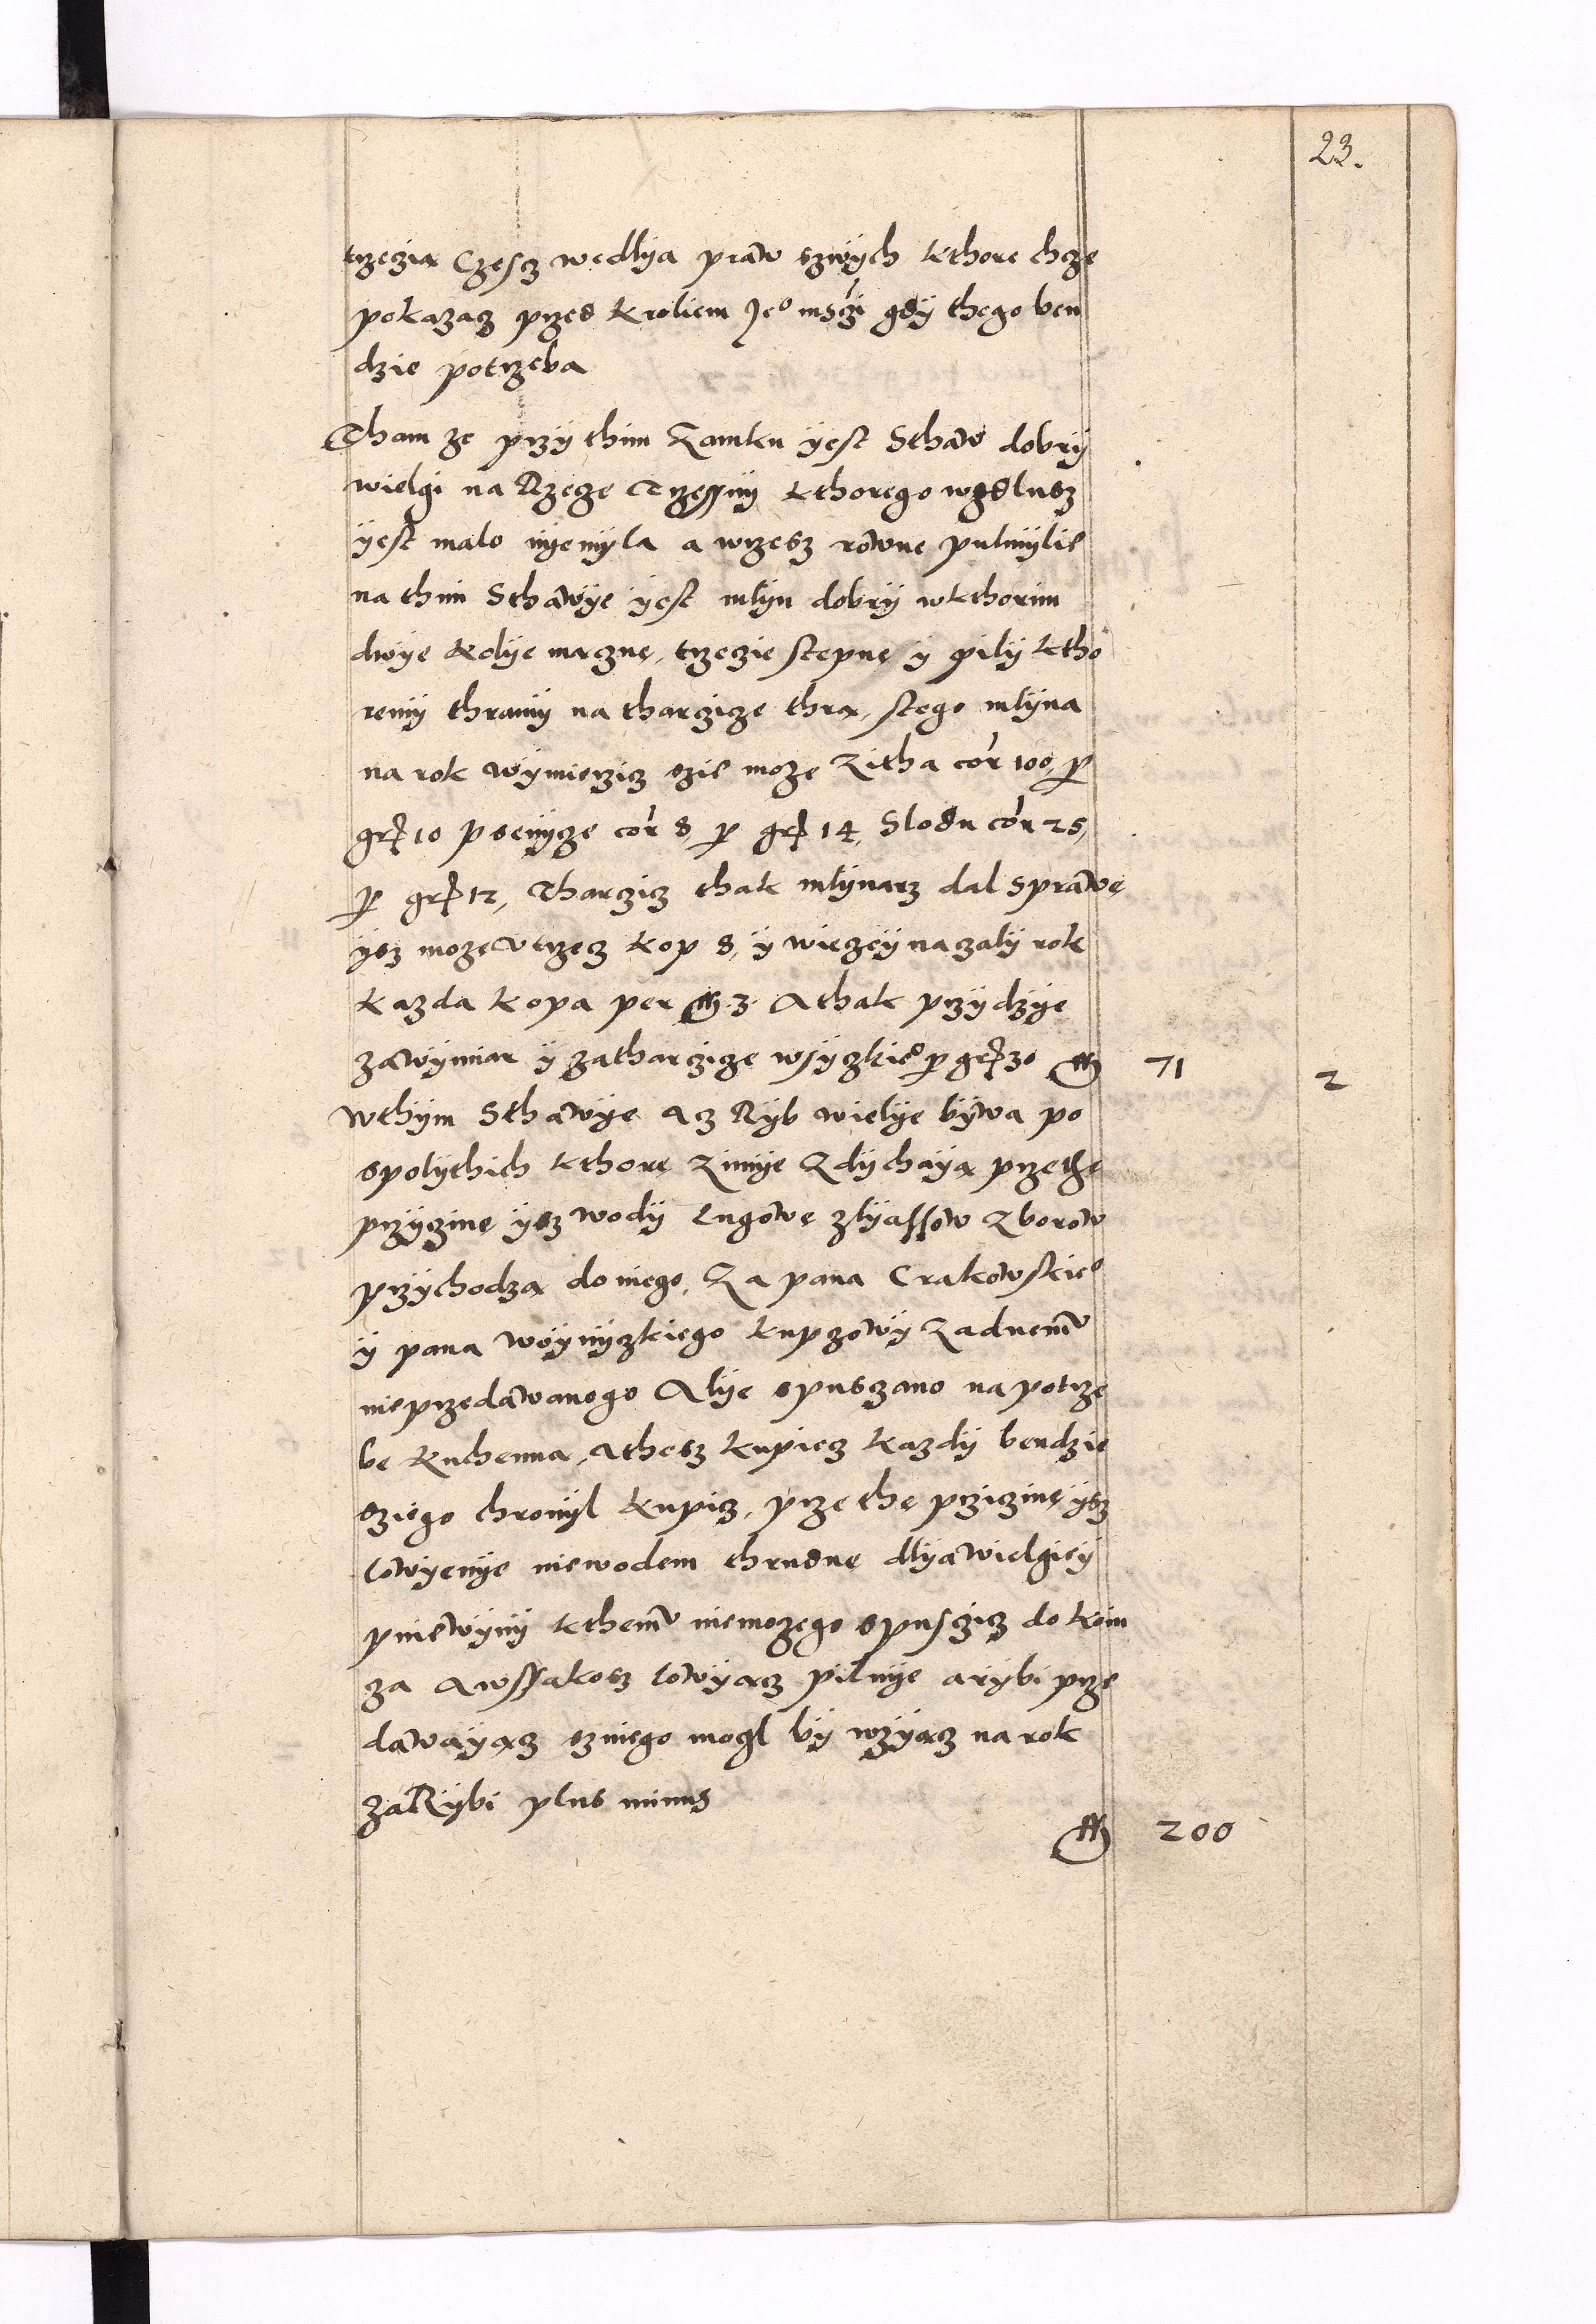 23.
trzeczia Czescz wedlya praw szwych kthore chcze
pokazacz przed kroliem Jeo msczi gdy thego ben
dzie potrzeba
Tham ze przy thim Zamku yest Sthaw dobry
wielgi na Rzecze Trzessny kthorego wzdlusz
yest malo nyemyla a wrzesz rowne pulmylie
na thim Sthawye yest mlyn dobry wkthorim
dwye kolye maczne, trzeczie stepne y pily ktho
remy thramy na tharczicze thra, stego mlyna
na rok wymierzicz szie moze Zitha cor 100, per
grß 10 psenycze cor 8, per grß 14, Slodu cor 25,
per grß 12, Tharczicz thak mlynarz dal sprawe,
ysz moze utrzecz kop 8, y wieczey na zaly rok
kazda kopa per M. 3. Athak przydzye
zawymiar y zatharczicze wsyczkieo per grß 30 M 71 2
Wthym Sthawye Acz Ryb wielye bywa po
spolythich kthore Zimye Zdychaya przethe
przyczine ysz wody Lugowe zlyassow Zborow
przychodza do niego, Za pana Crakowskieo
y pana woynyczkiego kupczowy Zadnemu
nieprzedawanogo Alye spusczano na potrze
be kuchenna, Athesz kupiecz kazdy bendzie
sziego chronyl kupicz, prze the prziczine ysz
lowyenye niewodem thrudne dlya wielgiey
pniewyny kthemu niemozego spusczicz do kon
cza Awssakosz lowyacz pilnye arybi prze
dawayacz szniego mogl by wzyacz na rok
zaRybi plus minus
M 200